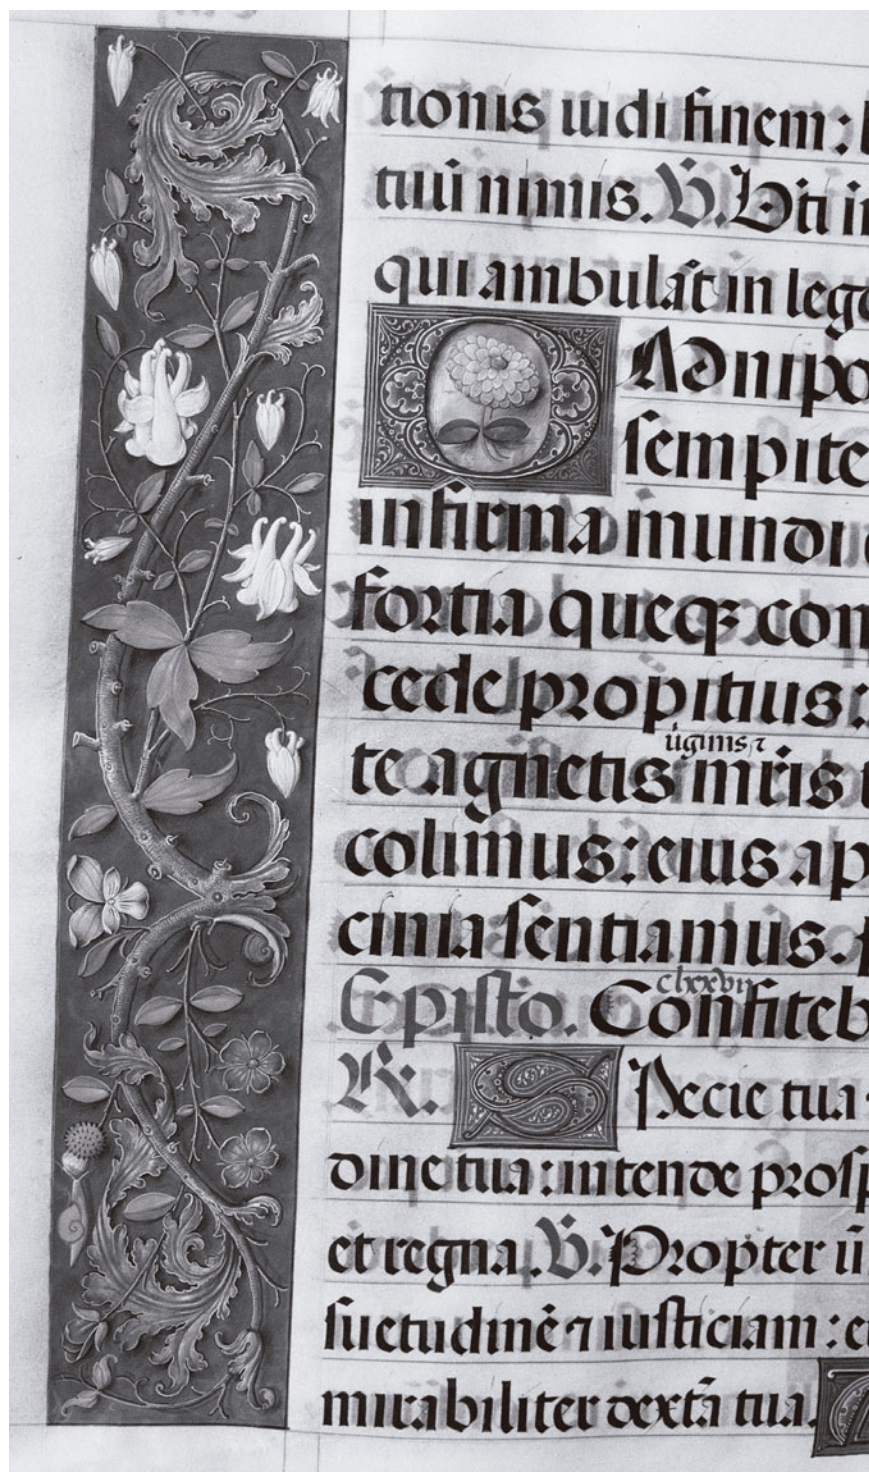 tionis uidi finem:
tuũ nimis. V̄. Bti in
qui ambulãt in lege
Omnipo
sempite
infirma mundi e
fortia queqꝫ con
cede propitius:
ũginis ⁊
te agnetis mr̃is
colimus: eius ap
cinia sentiamus.
clxxvij
Episto. Confiteb
R̄. Specie tua
dine tua: intende prosp
et regna. V̄. Propter
suetudinẽ ⁊ iusticiam: et
mirabiliter dextã tua.